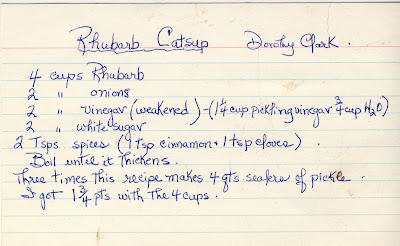 Rhubarb Catsup Dorothy Clark.
4 cups Rhubarb
2 " onions
2 " vinegar (weakened) - (1 1/4 cup pickling vinegar 3/4 cup H2O)
2 " white sugar
2 Tsps spices (1 tsp cinnamon + 1 tsp cloves).
Boil until it Thickens.
Three times this recipe makes 4 qts sealers of pickle.
I got 1 3/4 pts with the 4 cups.